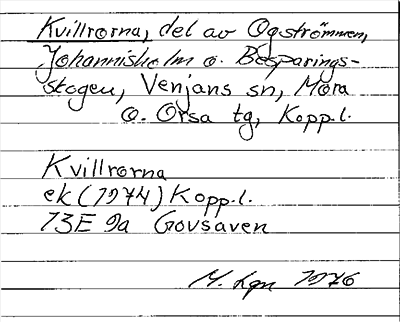 Kvillrorna, del av Ogströmmen,
Johannisholm o. Besparings-
skogen, Venjans sn, Mora
o. Orsa tg, Kopp.l.
Kvillrorna
ek (1974) Kopp.l.
13E 9a Govsaven
M. Lgn 1976